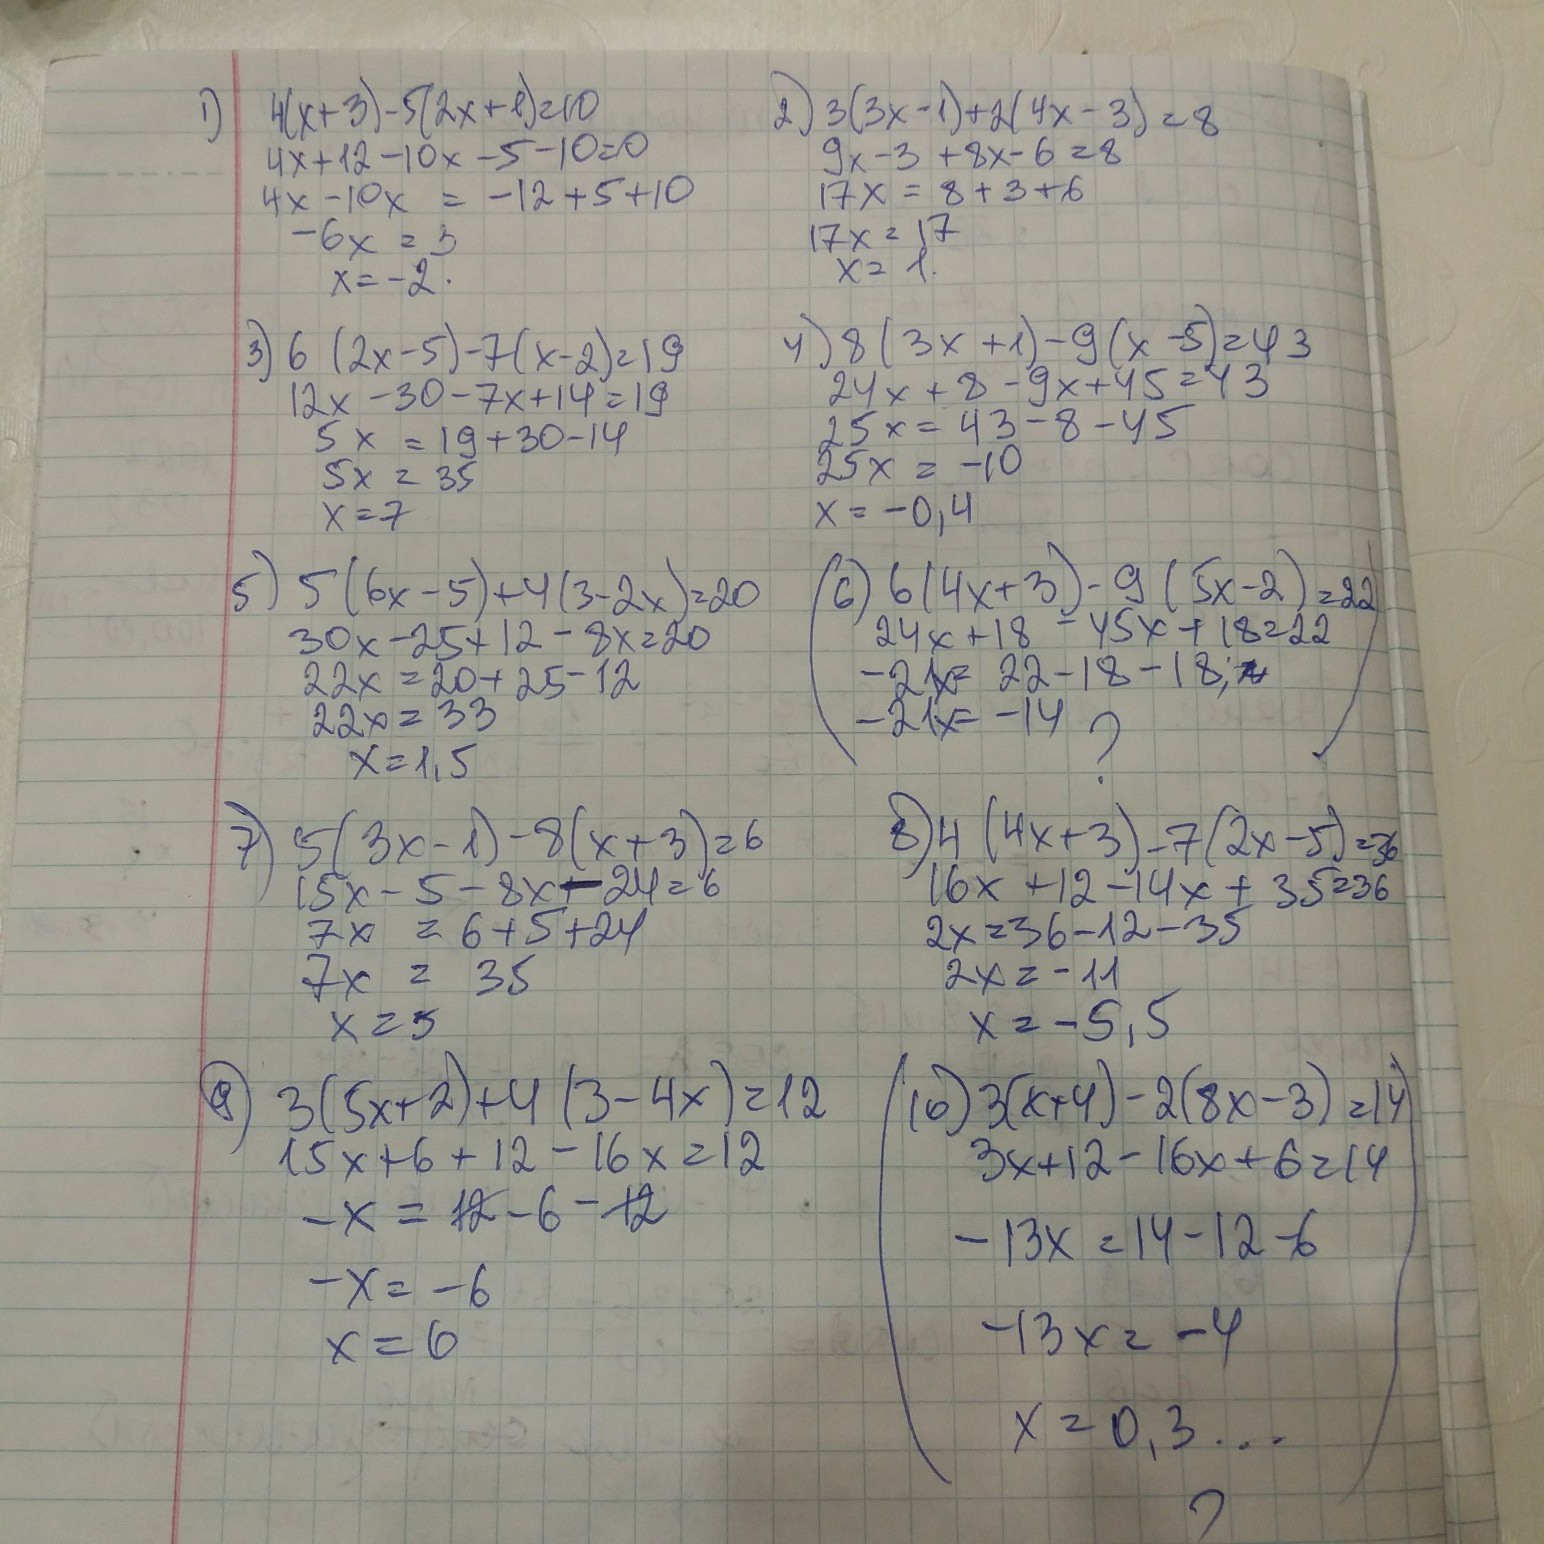 1) 4(x+3)-5(2x+1)=10
4x+12-10x-5-10=0
4x-10x = -12+5+10
-6x = 3
x=-2.
2) 3(3x-1)+2(4x-3)=8
9x-3+8x-6=8
17x = 8+3+6
17x=17
x=1.
3) 6(2x-5)-7(x-2)=19
12x-30-7x+14=19
5x = 19+30-14
5x = 35
x=7
4) 8(3x+1)-9(x-5)=43
24x+8-9x+45=43
25x=43-8-45
25x = -10
x=-0,4
5) 5(6x-5)+4(3-2x)=20
30x-25+12-8x=20
22x=20+25-12
22x=33
x=1,5
(6) 6(4x+3)-9(5x-2)=22)
24x+18-45x+18=22
-21x= 22-18-18;
-21x= -14 ?
7) 5(3x-1)-8(x+3)=6
15x-5-8x-24=6
7x = 6+5+24
7x = 35
x=5
8) 4(4x+3)-7(2x-5)=36
16x+12-14x+35=36
2x=36-12-35
2x=-11
x=-5,5
9) 3(5x+2)+4(3-4x)=12
15x+6+12-16x=12
-x=12-6-12
-x= -6
x=6
(10) 3(x+4)-2(8x-3)=14)
3x+12-16x+6=14
-13x=14-12-6
-13x= -4
x=0,3...
?